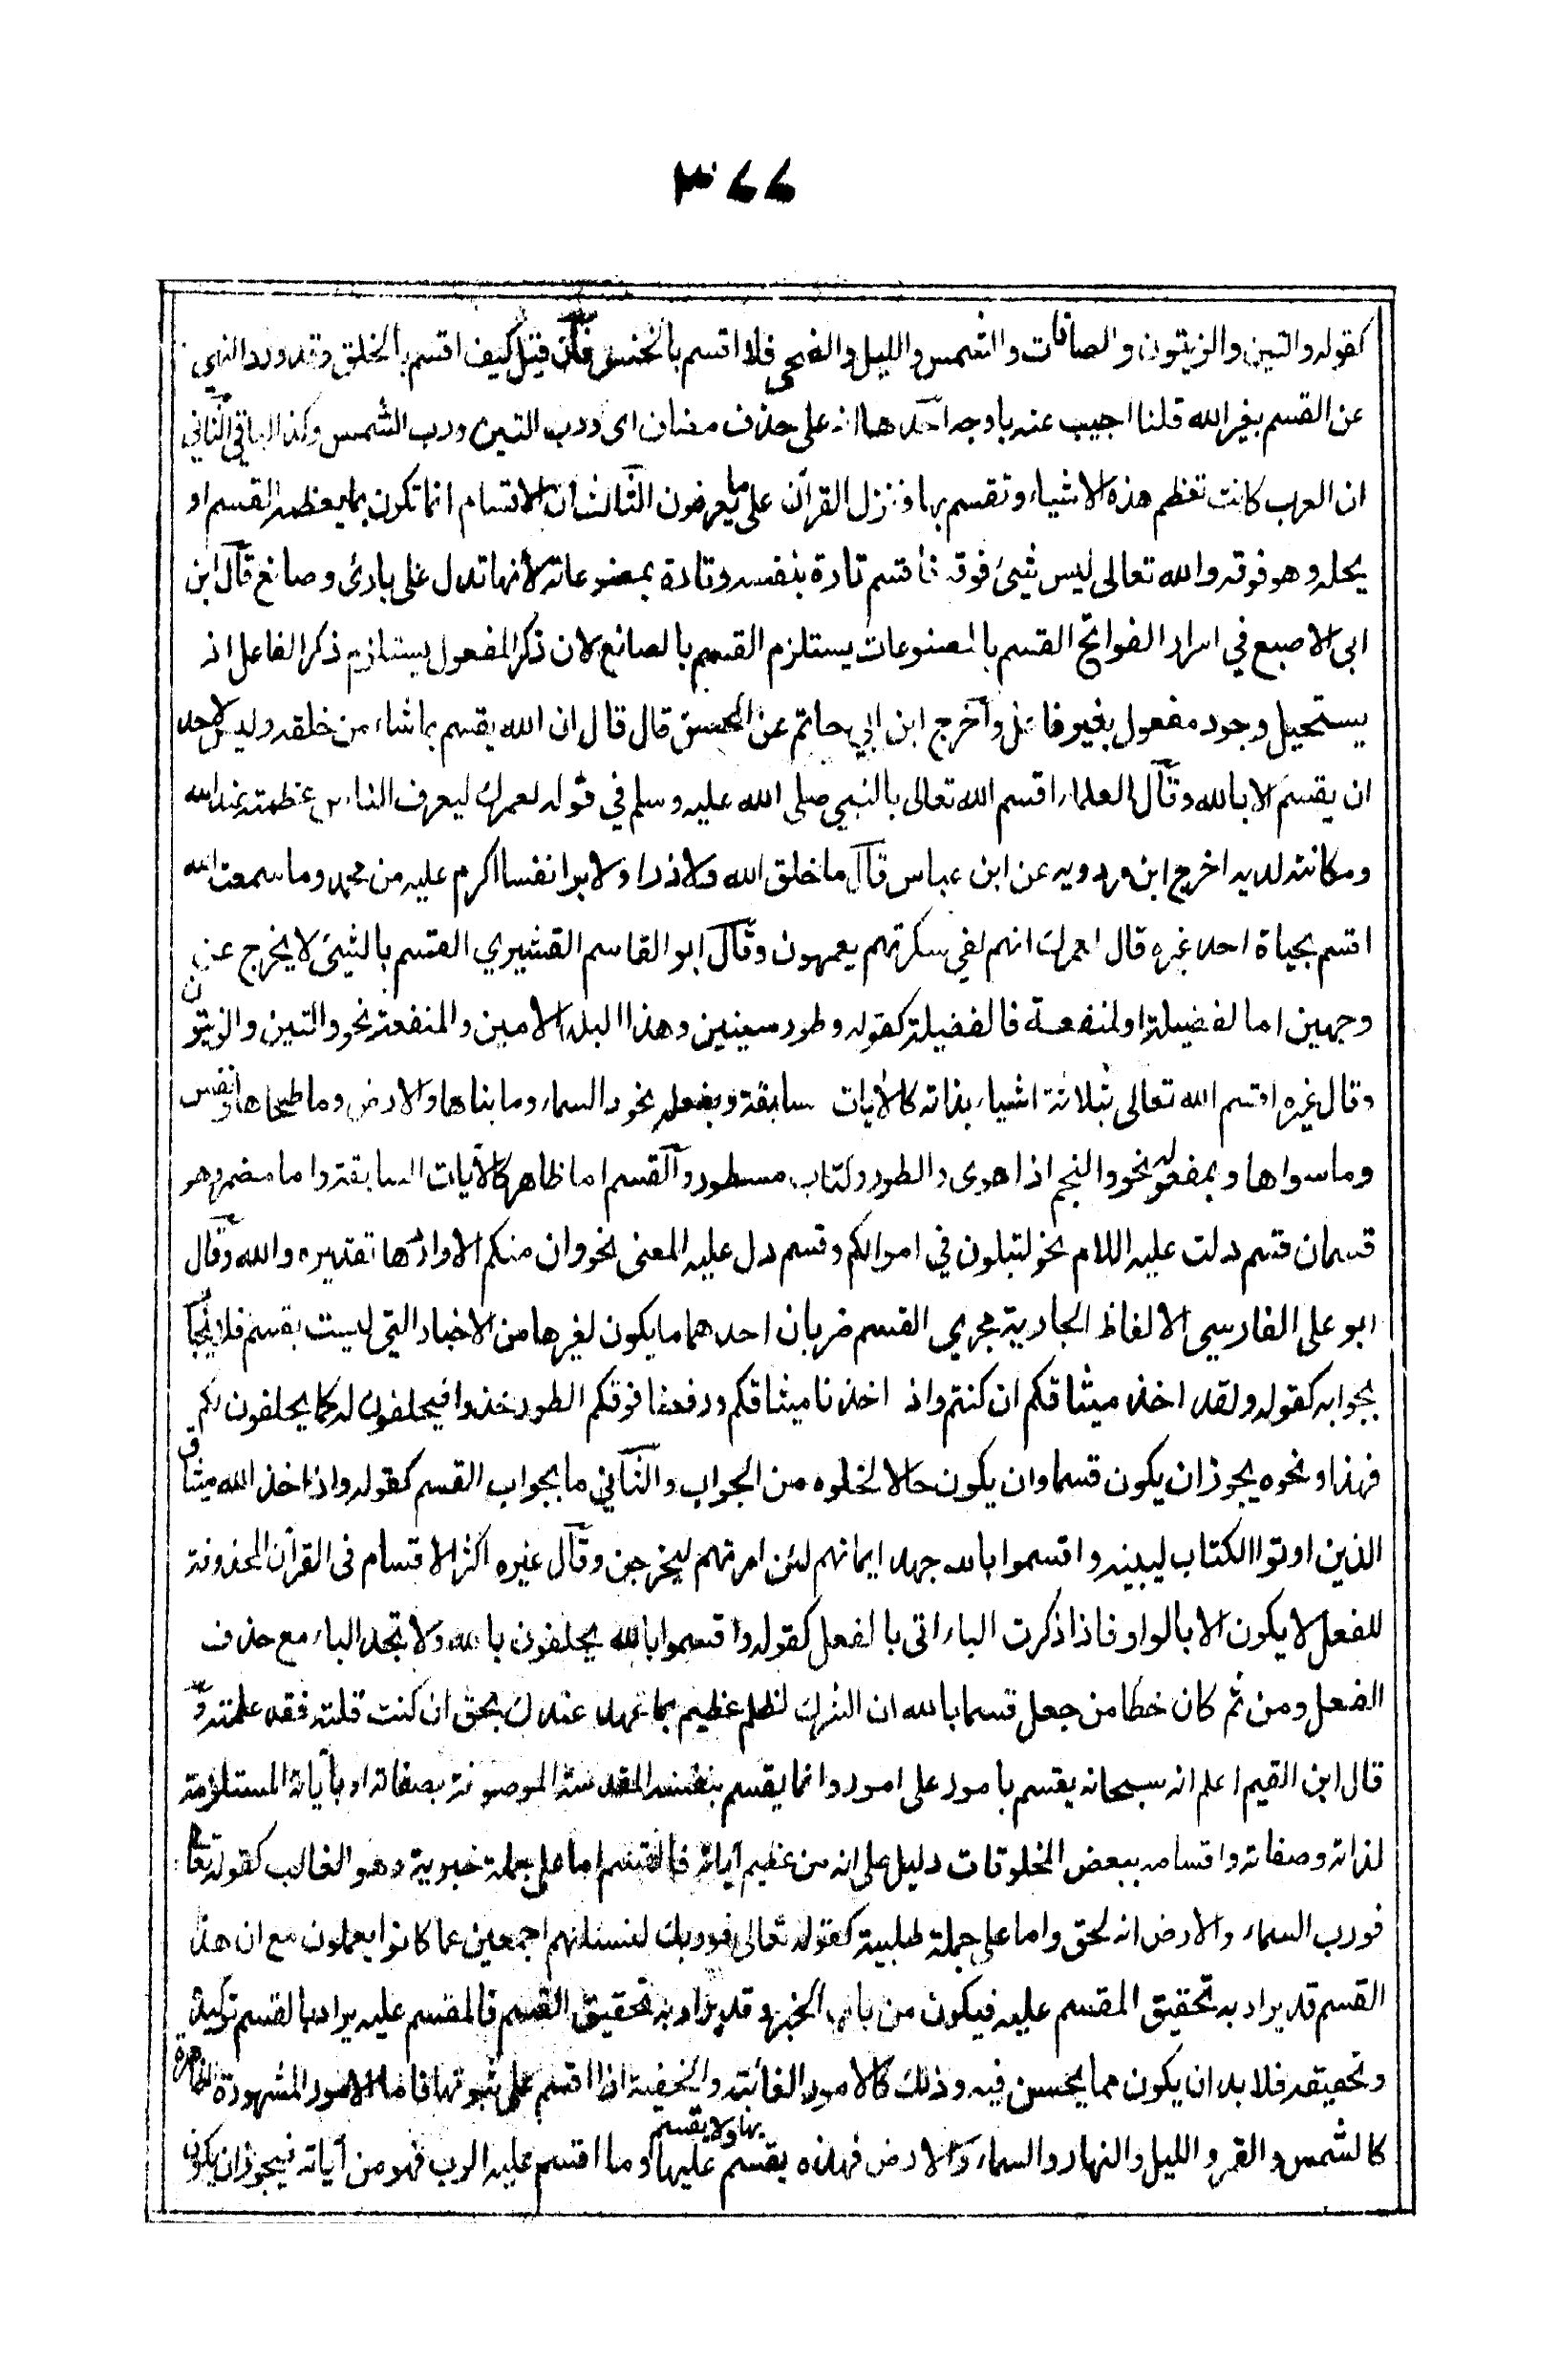 ٣٤٤
كقوله والتين والزيتون والصافات والشمس والليل والضحى فلا اقسم بالخنس فان قيل كيف اقسم بالخلق وقد ورد النهي
عن القسم بغير الله قلنا اجيب عنه باوجه احدها انه على حذف مضاف اى ورب التين ورب الشمس وكذا الباقي الثاني
ان العرب كانت تعظم هذه الاشياء وتقسم بها فنزل القرآن على ما يعرفون الثالث ان الاقسام انما تكون بما يعظمه المقسم او
يجله وهو فوقه والله تعالى ليس شيئ فوقه فاقسم تارة بنفسه وتارة بمصنوعاته لانها تدل على بارئ وصانع قال ابن
ابى الاصبع في اسرار الفواتح القسم بالمصنوعات يستلزم القسم بالصانع لان ذكر المفعول يستلزم ذكر الفاعل اذ
يستحيل وجود مفعول بغير فاعل وآخرج ابن ابي حاتم عن الحسن قال قال ان الله يقسم بما شاء من خلقه وليس لاحد
ان يقسم الا بالله وقال العلماء اقسم الله تعالى بالنبي صلى الله عليه وسلم في قوله لعمرك ليعرف الناس عظمته عند الله
ومكانته لديه اخرج ابن مردويه عن ابن عباس قال ما خلق الله ولا ذرا ولا برا نفسا اكرم عليه من محمد وما سمعت الله
اقسم بحياة احد غيره قال لعمرك انهم لفي سكرتهم يعمهون وقال ابو القاسم القشيري القسم بالشيئ لا يخرج عن
وجهين اما لفضيلة او لمنفعة فالفضيلة كقوله وطور سينين وهذا البلد الامين والمنفعة نحو والتين والزيتون
وقال غيره اقسم الله تعالى بثلاثة اشياء بذاته كالآيات سابقة وبفعله نحو والسماء وما بناها والارض وما طحاها ونفس
وما سواها وبمفعوله نحو والنجم اذا هوى والطور وكتاب مسطور والقسم اما ظاهر كالآيات السابقة واما مضمر وهو
قسمان قسم دلت عليه اللام نحو لتبلون في اموالكم وقسم دل عليه المعنى نحو وان منكم الا واردها تقديره والله وقال
ابو على الفارسي الالفاظ الجارية مجرى القسم ضربان احدهما ما يكون لغيرها من الاخبار التي ليست بقسم فلا يجاب
بجوابه كقوله ولقد اخذ ميثاقكم ان كنتم واذ اخذنا ميثاقكم ورفعنا فوقكم الطور خذوا فيحلفون له كما يحلفون لكم
فهذا ونحوه يجوز ان يكون قسما وان يكون حالا لخلوه من الجواب والثاني ما بجواب القسم كقوله واذ اخذ الله ميثاق
الذين اوتوا الكتاب ليبينه واقسموا بالله جهد ايمانهم لئن امرتهم ليخرجن وقال غيره اكثر الاقسام فى القرآن المحذوفة
للفعل لا يكون الا بالواو فاذا ذكرت الباء اتى بالفعل كقوله واقسموا بالله يحلفون بالله ولا تجد الباء مع حذف
الفعل ومن ثم كان خطا من جعل قسما بالله ان الشرك لظلم عظيم بما عهد عندك بحق ان كنت قلته فقد علمته و
قال ابن القيم اعلم انه سبحانه يقسم بامور على امور وانما يقسم بنفسه المقدسة الموصوفة بصفاته او بآياته المستلزمة
لذاته وصفاته واقسامه ببعض المخلوقات دليل على انه من عظيم آياته فالقسم اما على جملة خبرية وهو الغالب كقوله تعا
فورب السماء والارض انه لحق واما على جملة طلبية كقوله تعالى فوربك لنسئلنهم اجمعين عما كانوا يعملون مع ان هذا
القسم قد يراد به تحقيق المقسم عليه فيكون من باب الخبر وقد يراد به تحقيق القسم فالمقسم عليه يراد بالقسم توكيده
وتحقيقه فلا بد ان يكون مما يحسن فيه وذلك كالامور الغائبة والخفية اذا اقسم على ثبوتها فاما الامور المشهودة الظاهرة
كالشمس والقمر والليل والنهار والسماء والارض فهذه يقسم بها ولا يقسم عليها وما اقسم عليه الرب فهو من آياته فيجوز ان يكون